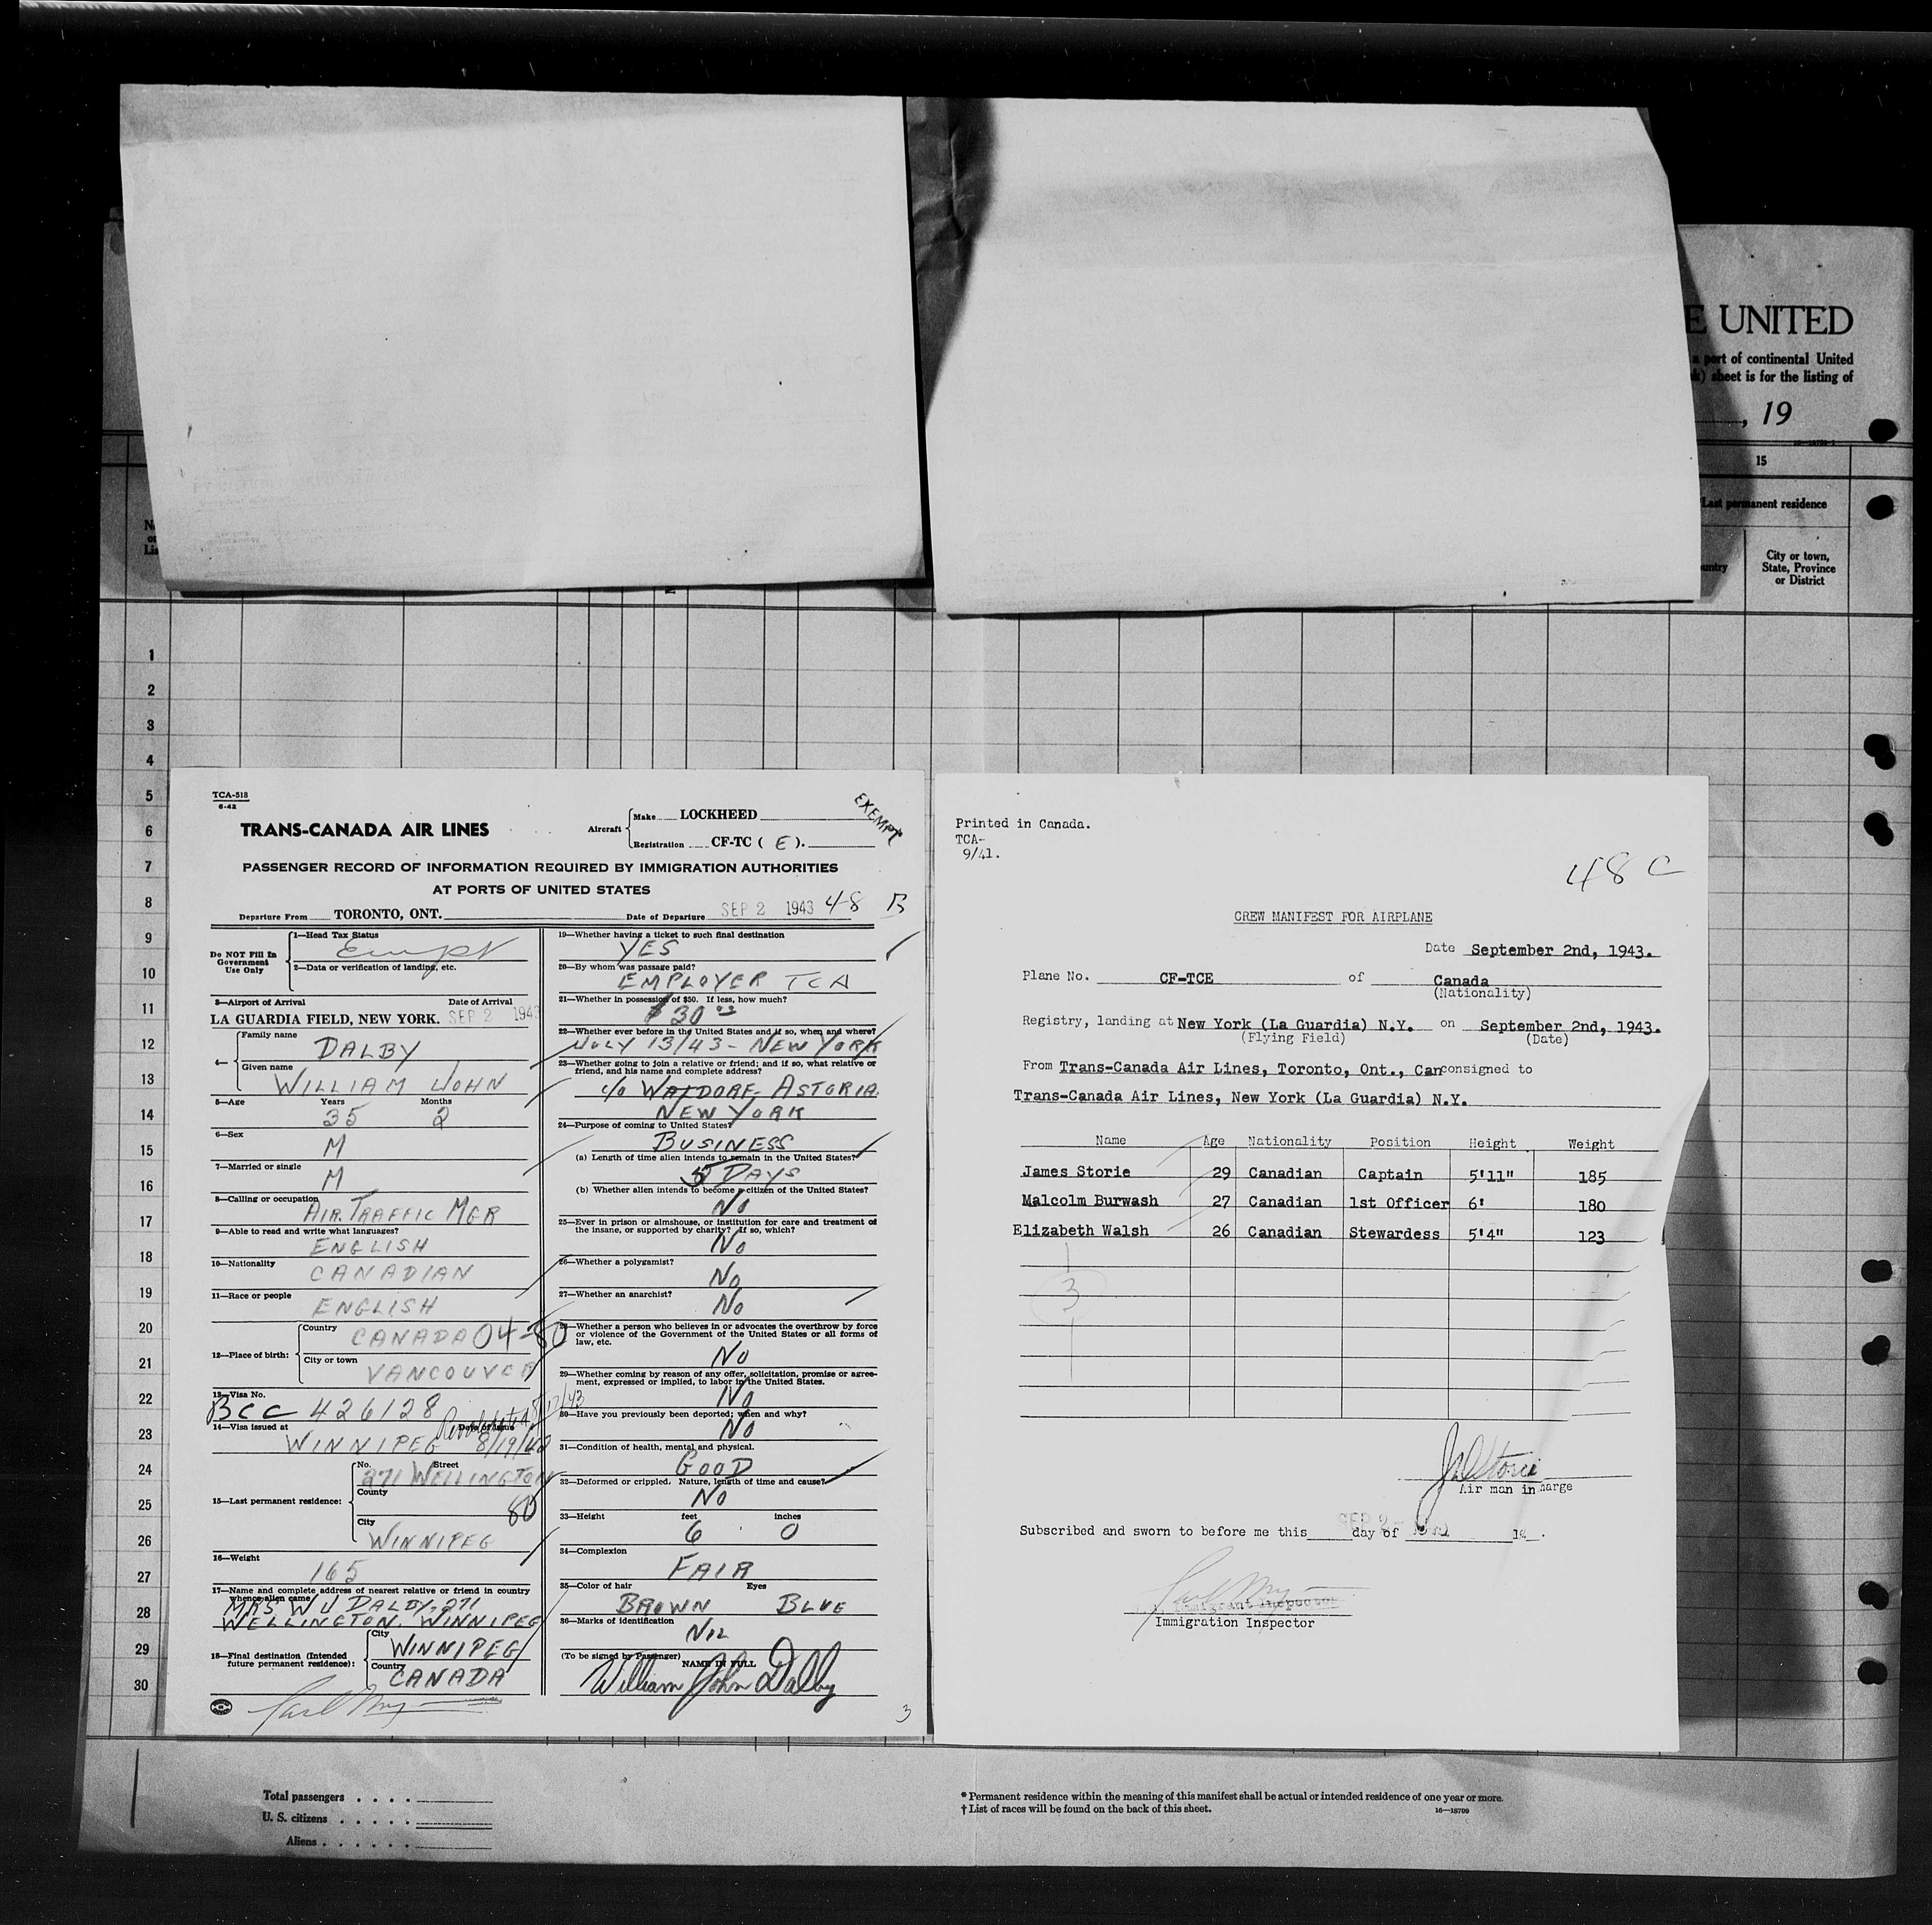 E UNITED
a port of continental United
k) sheet is for the listing of
, 19
15
Last permanent residence
City or town,
State, Province
or District
1
2
3
4
5
6
7
8
9
10
11
12
13
14
15
16
17
18
19
20
21
22
23
24
25
26
27
28
29
30
TCA-518
6-42
TRANS-CANADA AIR LINES
Aircraft
Make LOCKHEED
Registration CF-TC ( E ).
EXEMPT
PASSENGER RECORD OF INFORMATION REQUIRED BY IMMIGRATION AUTHORITIES
AT PORTS OF UNITED STATES
Departure From TORONTO, ONT. Date of Departure SEP 2 1943 48 B
Do NOT Fill In
Government
Use Only
1—Head Tax Status
Exempt
2—Data or verification of landing, etc.
3—Airport of Arrival Date of Arrival
LA GUARDIA FIELD, NEW YORK. SEP 2 1943
4—
Family name
DALBY
Given name
WILLIAM JOHN
5—Age Years Months
35 2
6—Sex
M
7—Married or single
M
8—Calling or occupation
AIR TRAFFIC MGR
9—Able to read and write what languages?
ENGLISH
10—Nationality
CANADIAN
11—Race or people
ENGLISH
12—Place of birth:
Country
CANADA 04-80
City or town
VANCOUVER
13—Visa No.
BCC 426128
14—Visa issued at Date of Issue
WINNIPEG 8/19/42
15—Last permanent residence:
No. Street
271 WELLINGTON
County
80
City
WINNIPEG
16—Weight
165
17—Name and complete address of nearest relative or friend in country
whence alien came
MRS W J DALBY. 271
WELLINGTON. WINNIPEG
18—Final destination (Intended
future permanent residence):
City
WINNIPEG
Country
CANADA
19—Whether having a ticket to such final destination
YES
20—By whom was passage paid?
EMPLOYER TCA
21—Whether in possession of $50. If less, how much?
$30
22—Whether ever before in the United States and if so, when and where?
JULY 13/43 - NEW YORK
23—Whether going to join a relative or friend; and if so, what relative or
friend, and his name and complete address?
c/o WALDORF-ASTORIA.
NEW YORK
24—Purpose of coming to United States?
BUSINESS
(a) Length of time alien intends to remain in the United States?
5 DAYS
(b) Whether alien intends to become a citizen of the United States?
NO
25—Ever in prison or almshouse, or institution for care and treatment of
the insane, or supported by charity? If so, which?
NO
26—Whether a polygamist?
NO
27—Whether an anarchist?
NO
28—Whether a person who believes in or advocates the overthrow by force
or violence of the Government of the United States or all forms of
law, etc.
NO
29—Whether coming by reason of any offer, solicitation, promise or agree-
ment, expressed or implied, to labor in the United States.
NO
30—Have you previously been deported; when and why?
NO
31—Condition of health, mental and physical.
GOOD
32—Deformed or crippled. Nature, length of time and cause?
NO
33—Height feet inches
6 0
34—Complexion
FAIR
35—Color of hair Eyes
BROWN BLUE
36—Marks of identification
NIL
(To be signed by Passenger)
NAME IN FULL
William John Dalby
3
Printed in Canada.
TCA-
9/41.
48 C
CREW MANIFEST FOR AIRPLANE
Date September 2nd, 1943.
Plane No. CF-TCE of Canada
(Nationality)
Registry, landing at New York (La Guardia) N.Y. on September 2nd, 1943.
(Flying Field) (Date)
From Trans-Canada Air Lines, Toronto, Ont., Can consigned to
Trans-Canada Air Lines, New York (La Guardia) N.Y.
Name Age Nationality Position Height Weight
James Storie 29 Canadian Captain 5'11" 185
Malcolm Burwash 27 Canadian 1st Officer 6' 180
Elizabeth Walsh 26 Canadian Stewardess 5'4" 123
3
Air man in charge
Subscribed and sworn to before me this day of 19 .
SEP 2-
Immigrant Inspector
Immigration Inspector
Total passengers . . . .
U. S. citizens . . . . .
Aliens . . . . . .
* Permanent residence within the meaning of this manifest shall be actual or intended residence of one year or more.
† List of races will be found on the back of this sheet.
16—18709